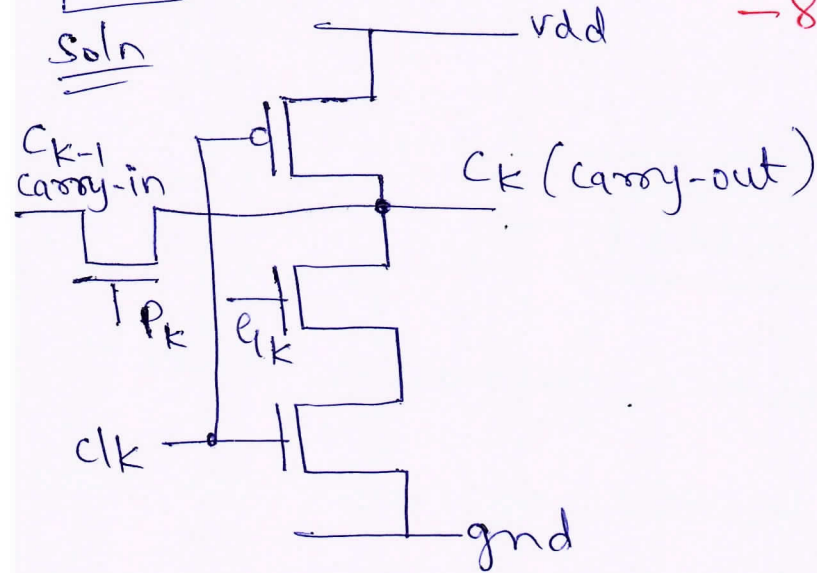 Soln
- 8
vdd
Ck-1
carry-in
Ck (carry-out)
Pk
Gk
clk
gnd